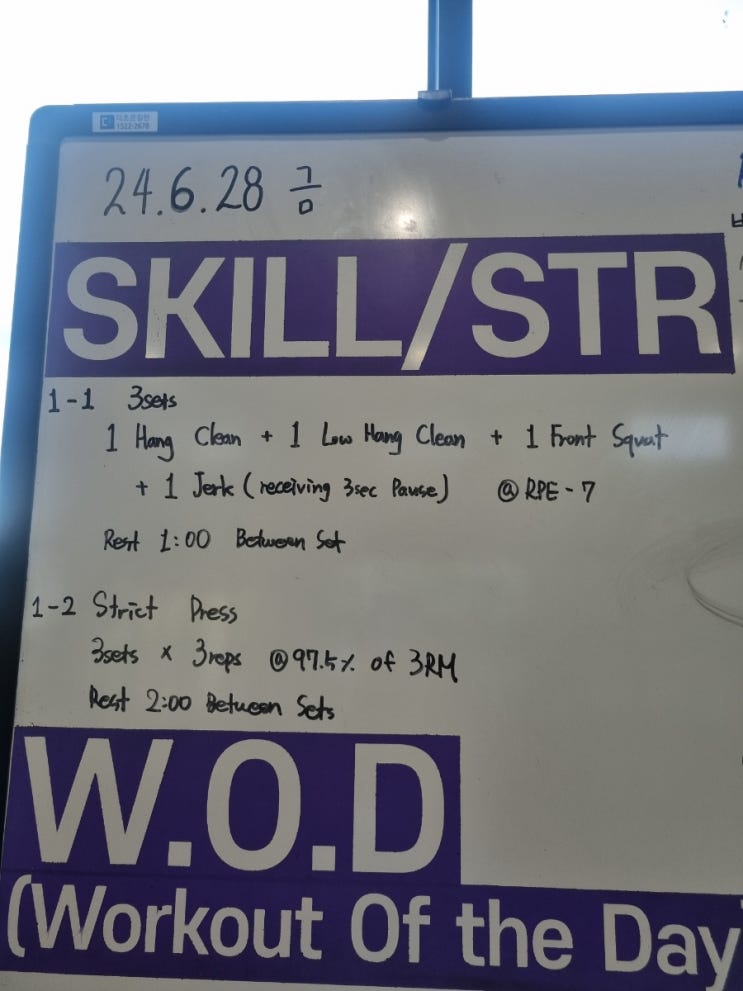 1522-2678
24.6.28 금
SKILL/STR
1-1 3sets
1 Hang Clean + 1 Low Hang Clean + 1 Front Squat
+ 1 Jerk (receiving 3sec Pause) @ RPE-7
Rest 1:00 Between Set
1-2 Strict Press
3sets × 3reps @97.5% of 3RM
Rest 2:00 Between Sets
W.O.D
(Workout Of the Day